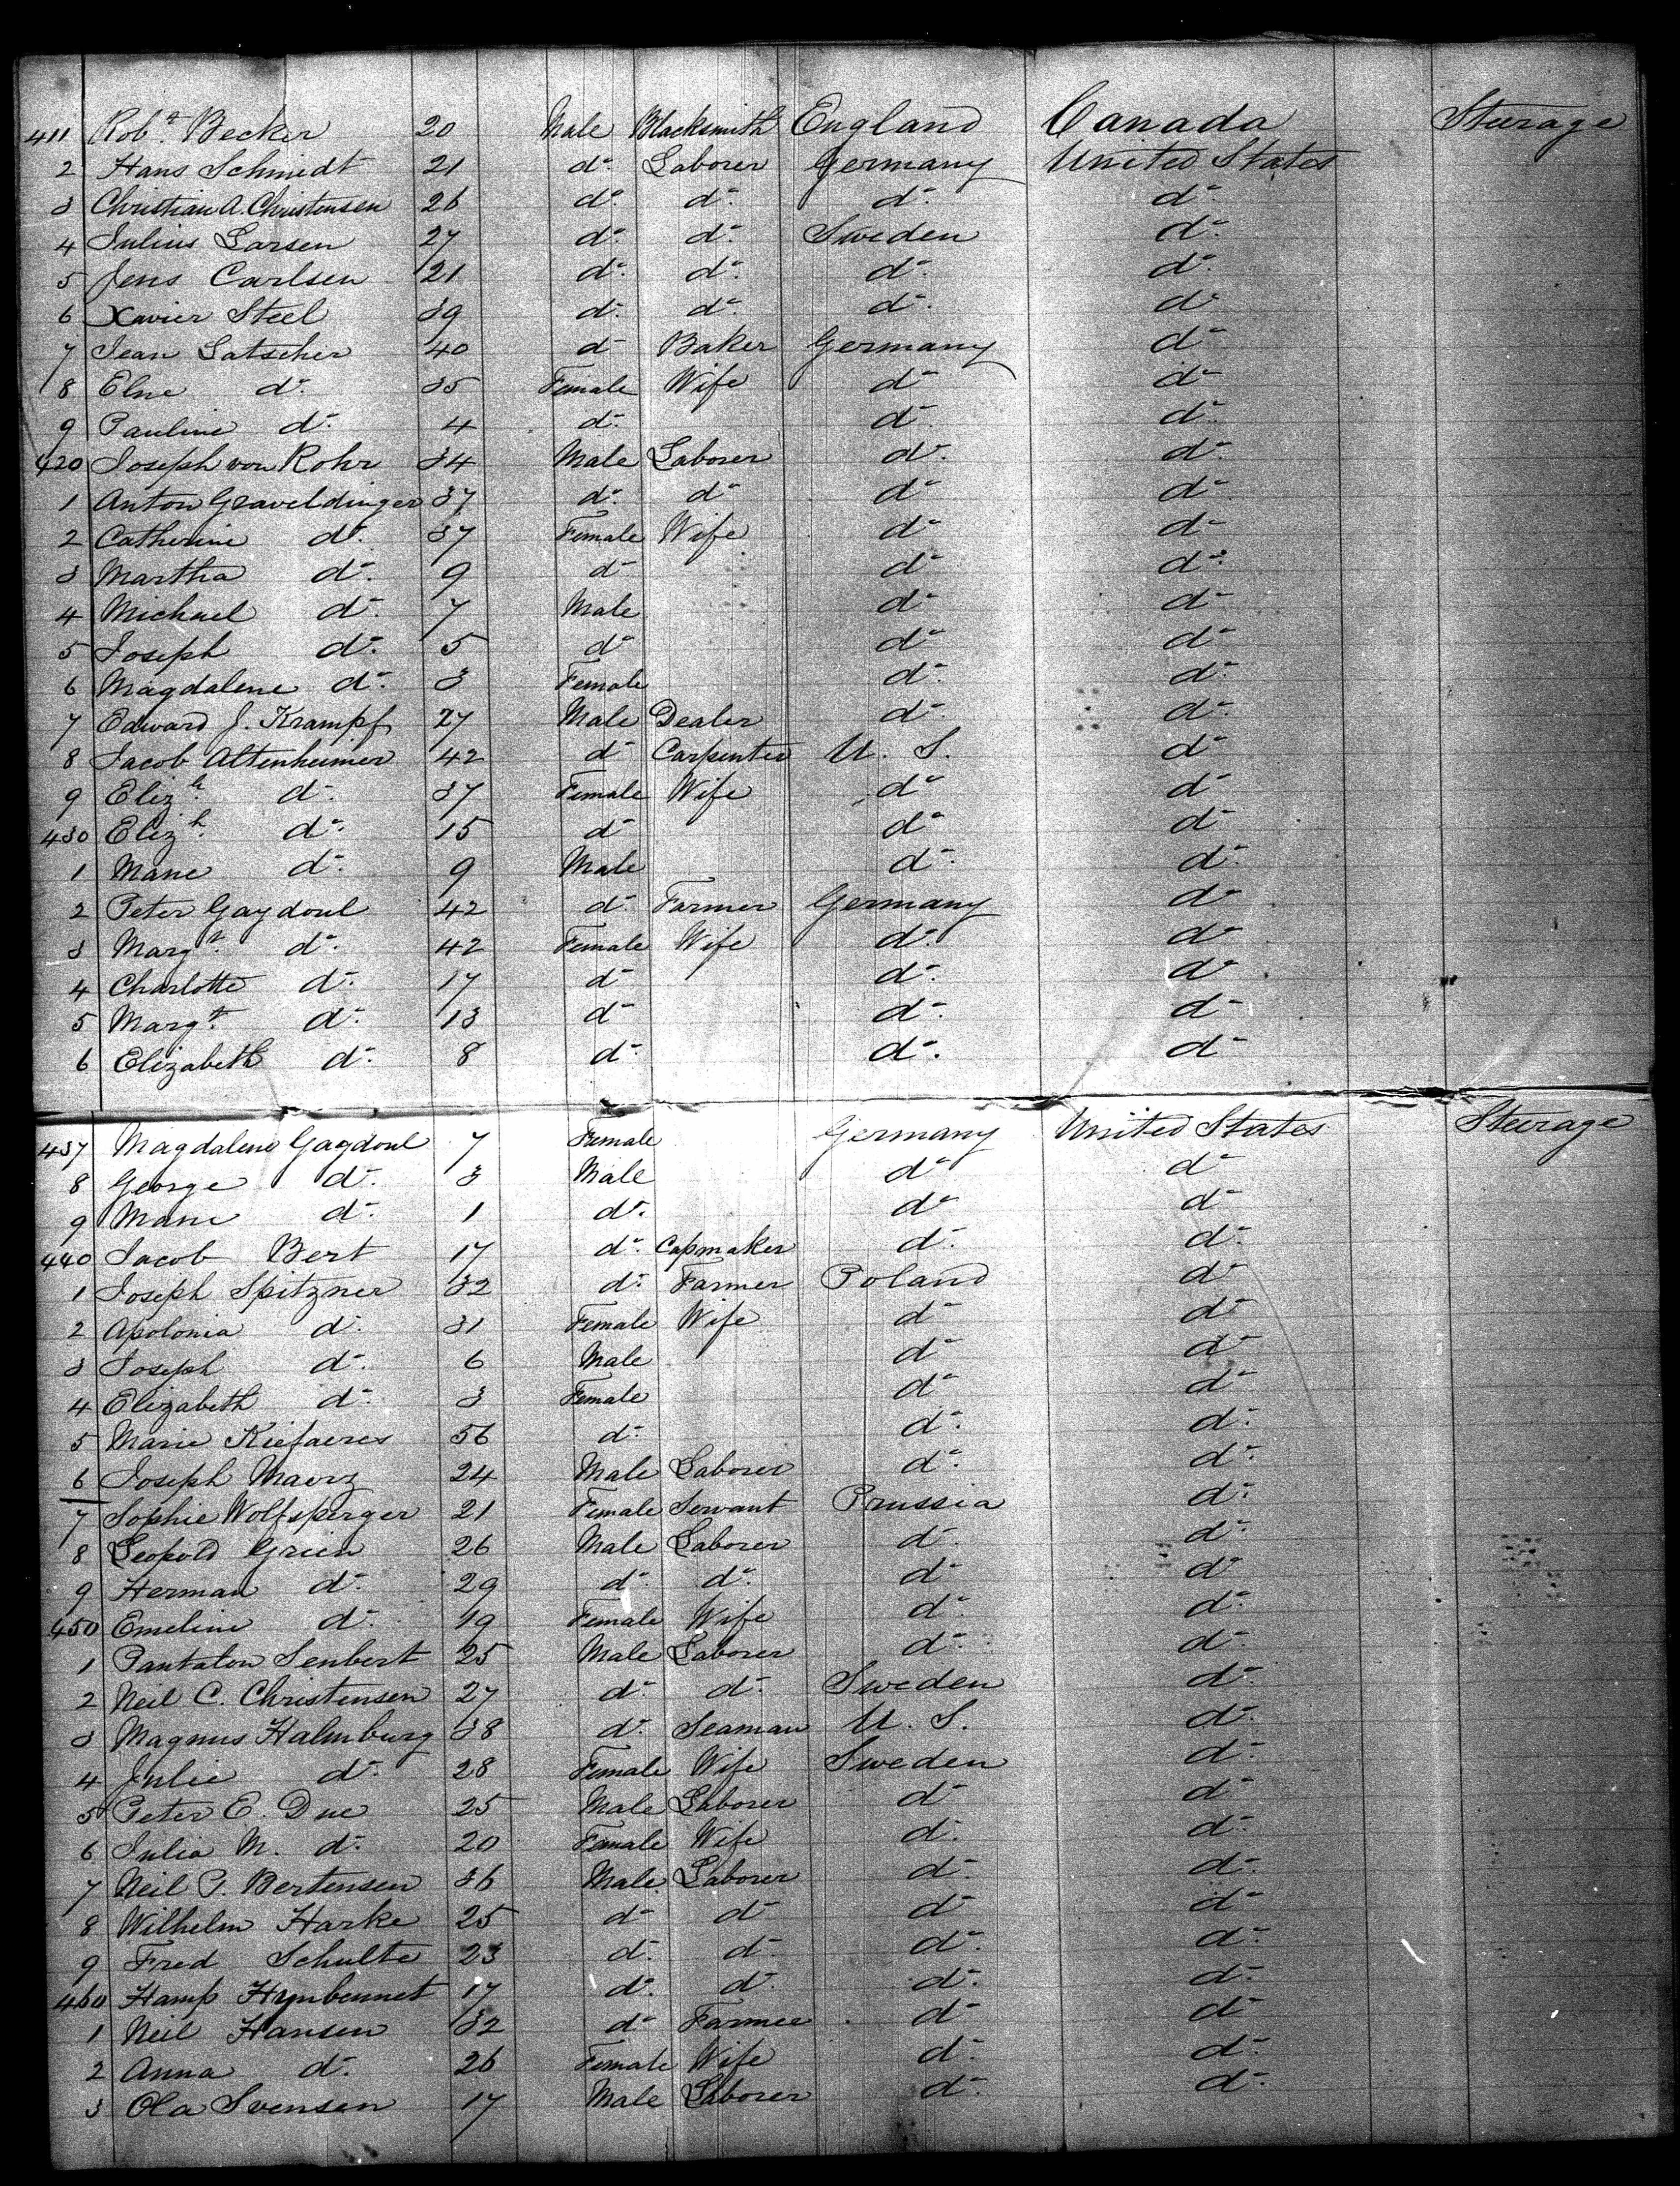 411 Robt. Becker 20 Male Blacksmith England Canada Steerage
2 Hans Schmidt 21 do. Laborer Germany United States
3 Christian A. Christensen 26 do. do. do. do.
4 Julius Larsen 27 do. do. Sweden do.
5 Jens Carlsen 21 do. do. do. do.
6 Xavier Steel 39 do. do. do. do
7 Jean Latscher 40 do Baker Germany do
8 Elne do. 35 Female Wife do do
9 Pauline do. 4 do. do. do.
420 Joseph von Rohr 34 Male Laborer do. do.
1 Anton Graveldinger 37 do. do do do
2 Catherine do. 37 Female Wife do do
3 Martha do. 9 do do do
4 Michael do. 7 Male do do
5 Joseph do. 5 do do do
6 Magdalene do. 3 Female do. do.
7 Edward J. Krampf 27 Male Dealer do. do.
8 Jacob Altenheimer 42 do Carpenter U. S. do
9 Elizh. do. 37 Female Wife do do
430 Elizh. do. 15 do do do
1 Mane do. 9 Male do. do.
2 Peter Gaydoul 42 do. Farmer Germany do
3 Margt. do. 42 Female Wife do. do
4 Charlotte do. 17 do do. do
5 Margt. do. 13 do do. do
6 Elizabeth do. 8 do. do. do
437 Magdalene Gaydoul 7 Female Germany United States Steerage
8 George do. 3 Male do do
9 Mane do. 1 do. do do
440 Jacob Bert 17 do. Capmaker do. do.
1 Joseph Spitzner 32 do. Farmer Poland do
2 Apolonia do. 31 Female Wife do do
3 Joseph do. 6 Male do do
4 Elizabeth do. 3 Female do do
5 Marie Kiefaeres 56 do. do. do.
6 Joseph Maerz 24 Male Laborer do. do.
7 Sophie Wolfsperger 21 Female Servant Prussia do.
8 Leopold Grien 26 Male Laborer do. do.
9 Herman do. 29 do. do. do do
450 Emeline do. 19 Female Wife do. do.
1 Pantaton Senbert 25 Male Laborer do. do.
2 Neil C. Christensen 27 do. do. Sweden do.
3 Magnus Halmburg 38 do. Seaman U. S. do.
4 Julie do. 28 Female Wife Sweden do.
5 Peter E. Due 25 Male Laborer do do
6 Julia M. do. 20 Female Wife do. do.
7 Neil P. Bertensen 36 Male Laborer do. do.
8 Wilhelm Harke 25 do do do do
9 Fred Schulte 23 do. do. do. do.
460 Hamp Hynbennet 17 do. do do. do.
1 Neil Hansen 32 do Farmer do do
2 Anna do. 26 Female Wife do. do.
3 Ola Svensen 17 Male Laborer do. do.